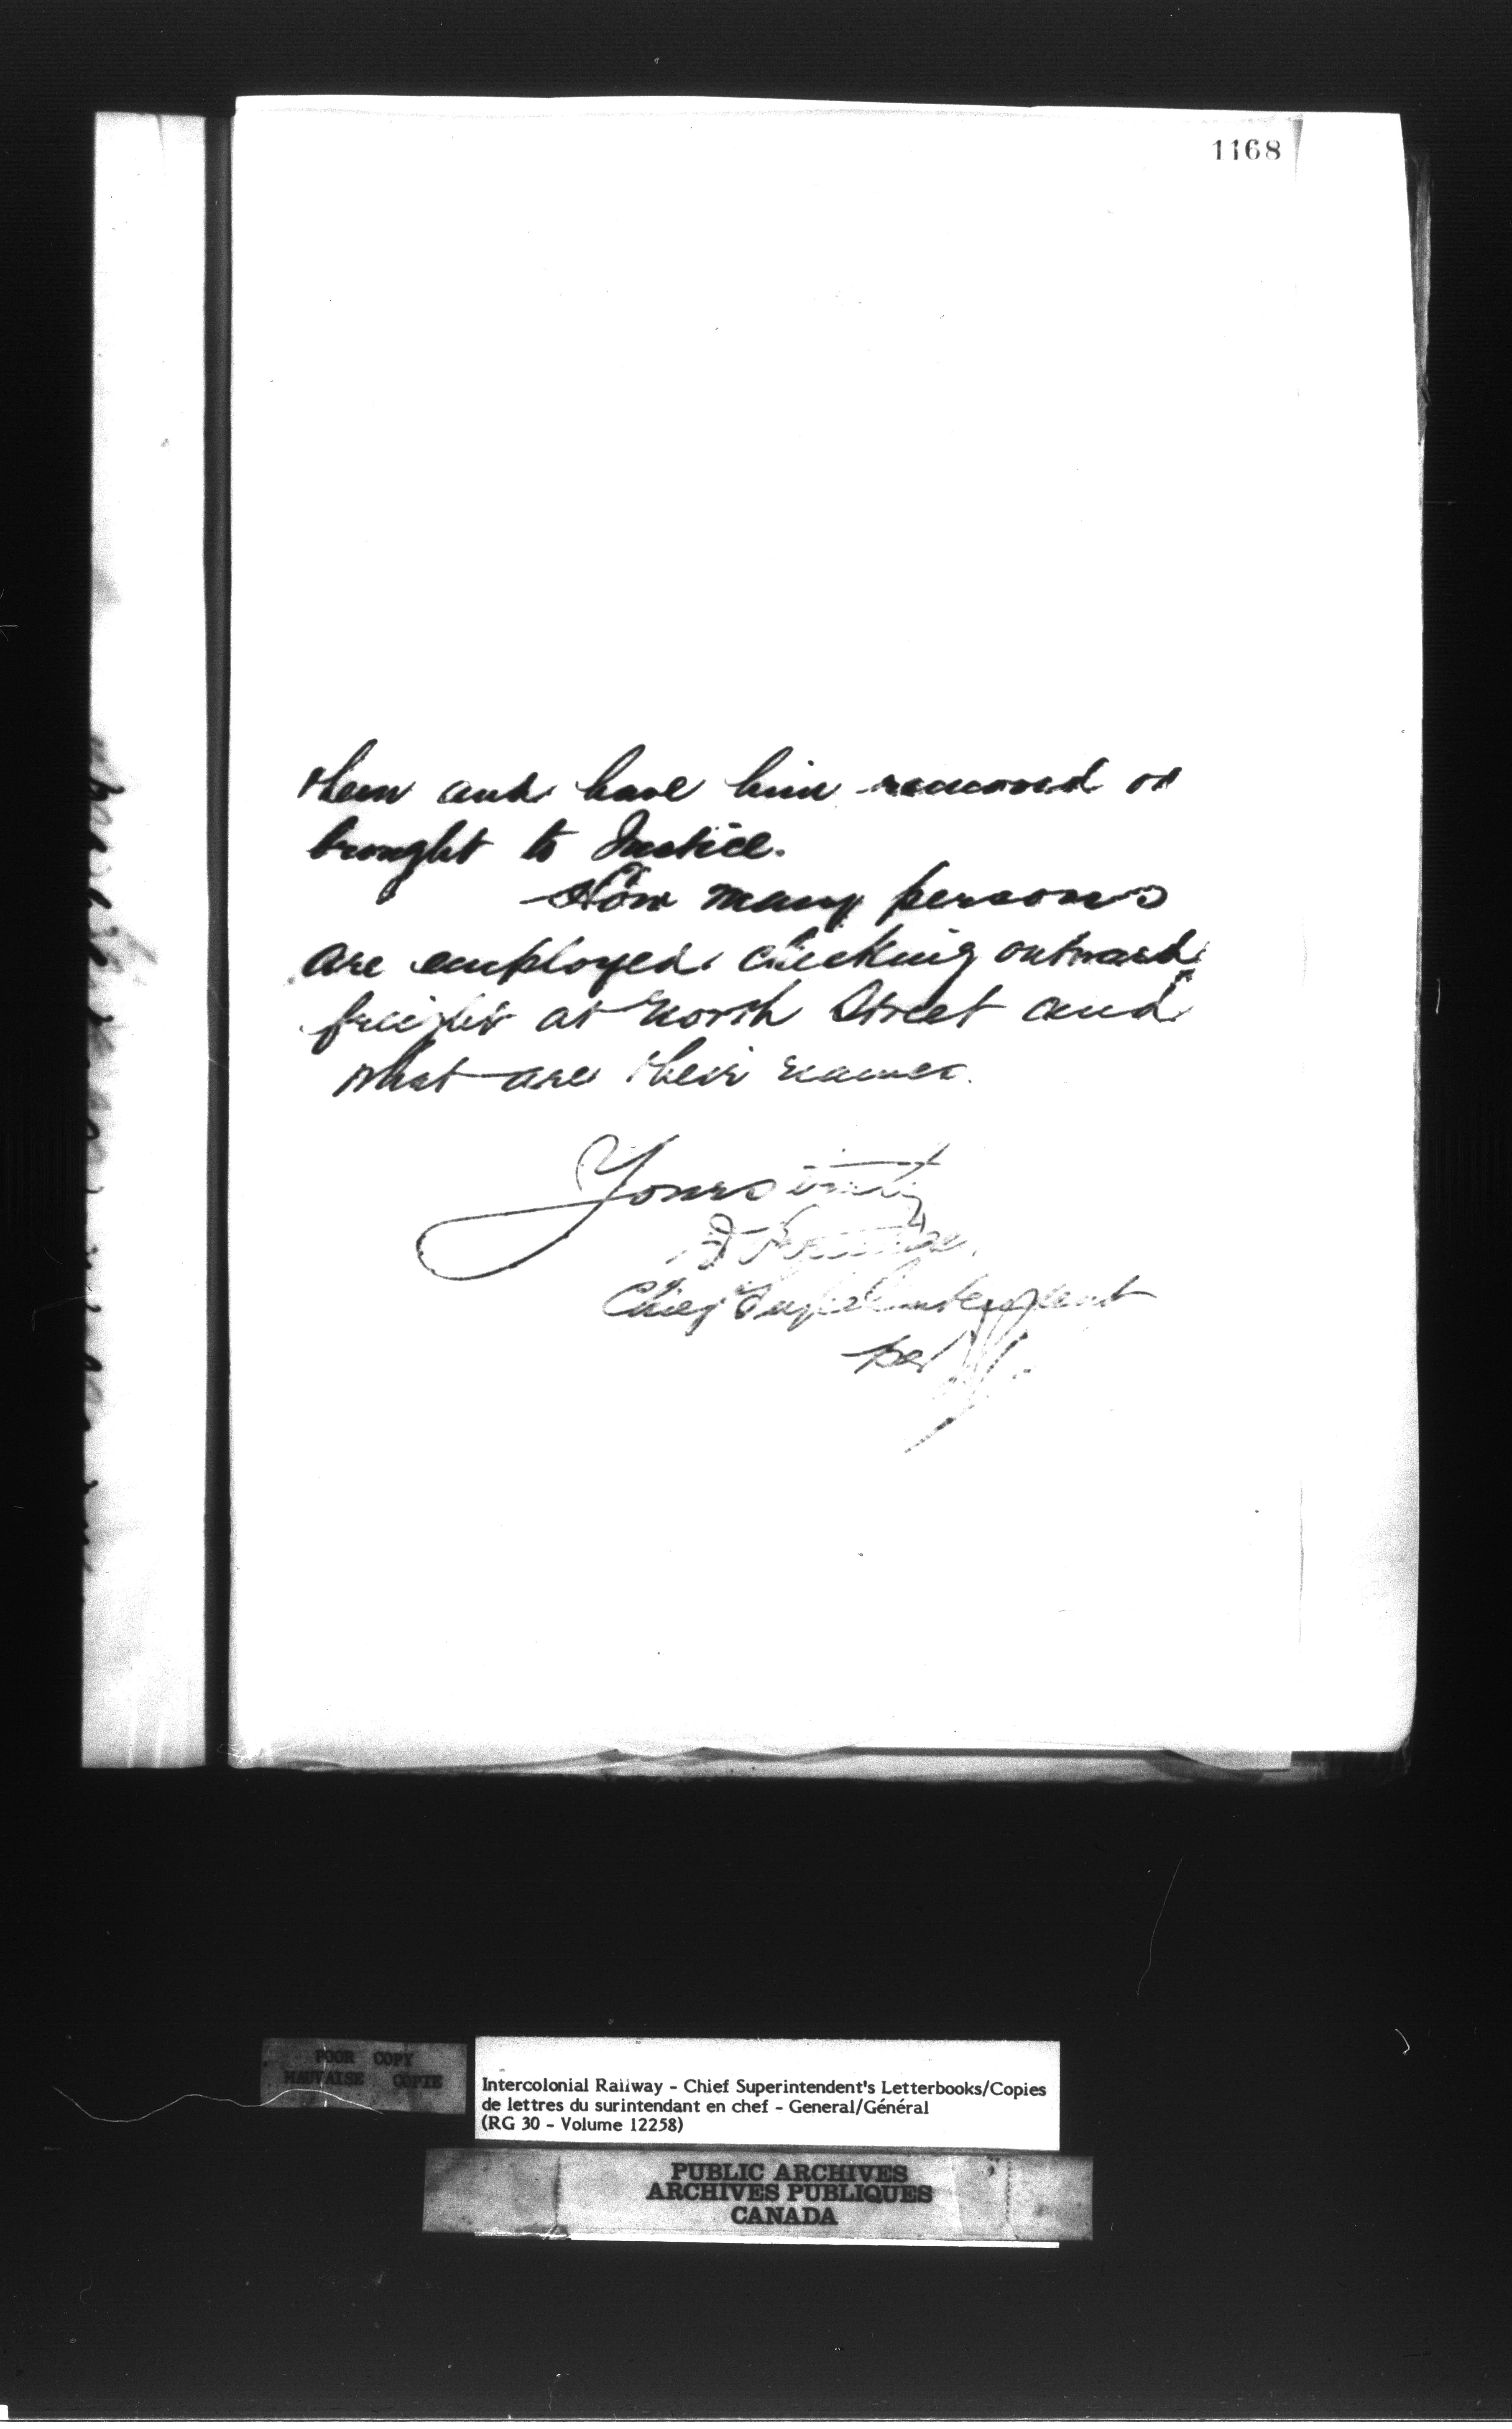 1168
them and have him removed or
brought to Justice.
How many persons
are employed checking outward
freight at North Street and
what are their names.
Yours truly
D Pottinger
Chief Superintendent
per
POOR COPY
MAUVAISE COPIE
Intercolonial Railway - Chief Superintendent's Letterbooks/Copies
de lettres du surintendant en chef - General/Général
(RG 30 - Volume 12258)
PUBLIC ARCHIVES
ARCHIVES PUBLIQUES
CANADA